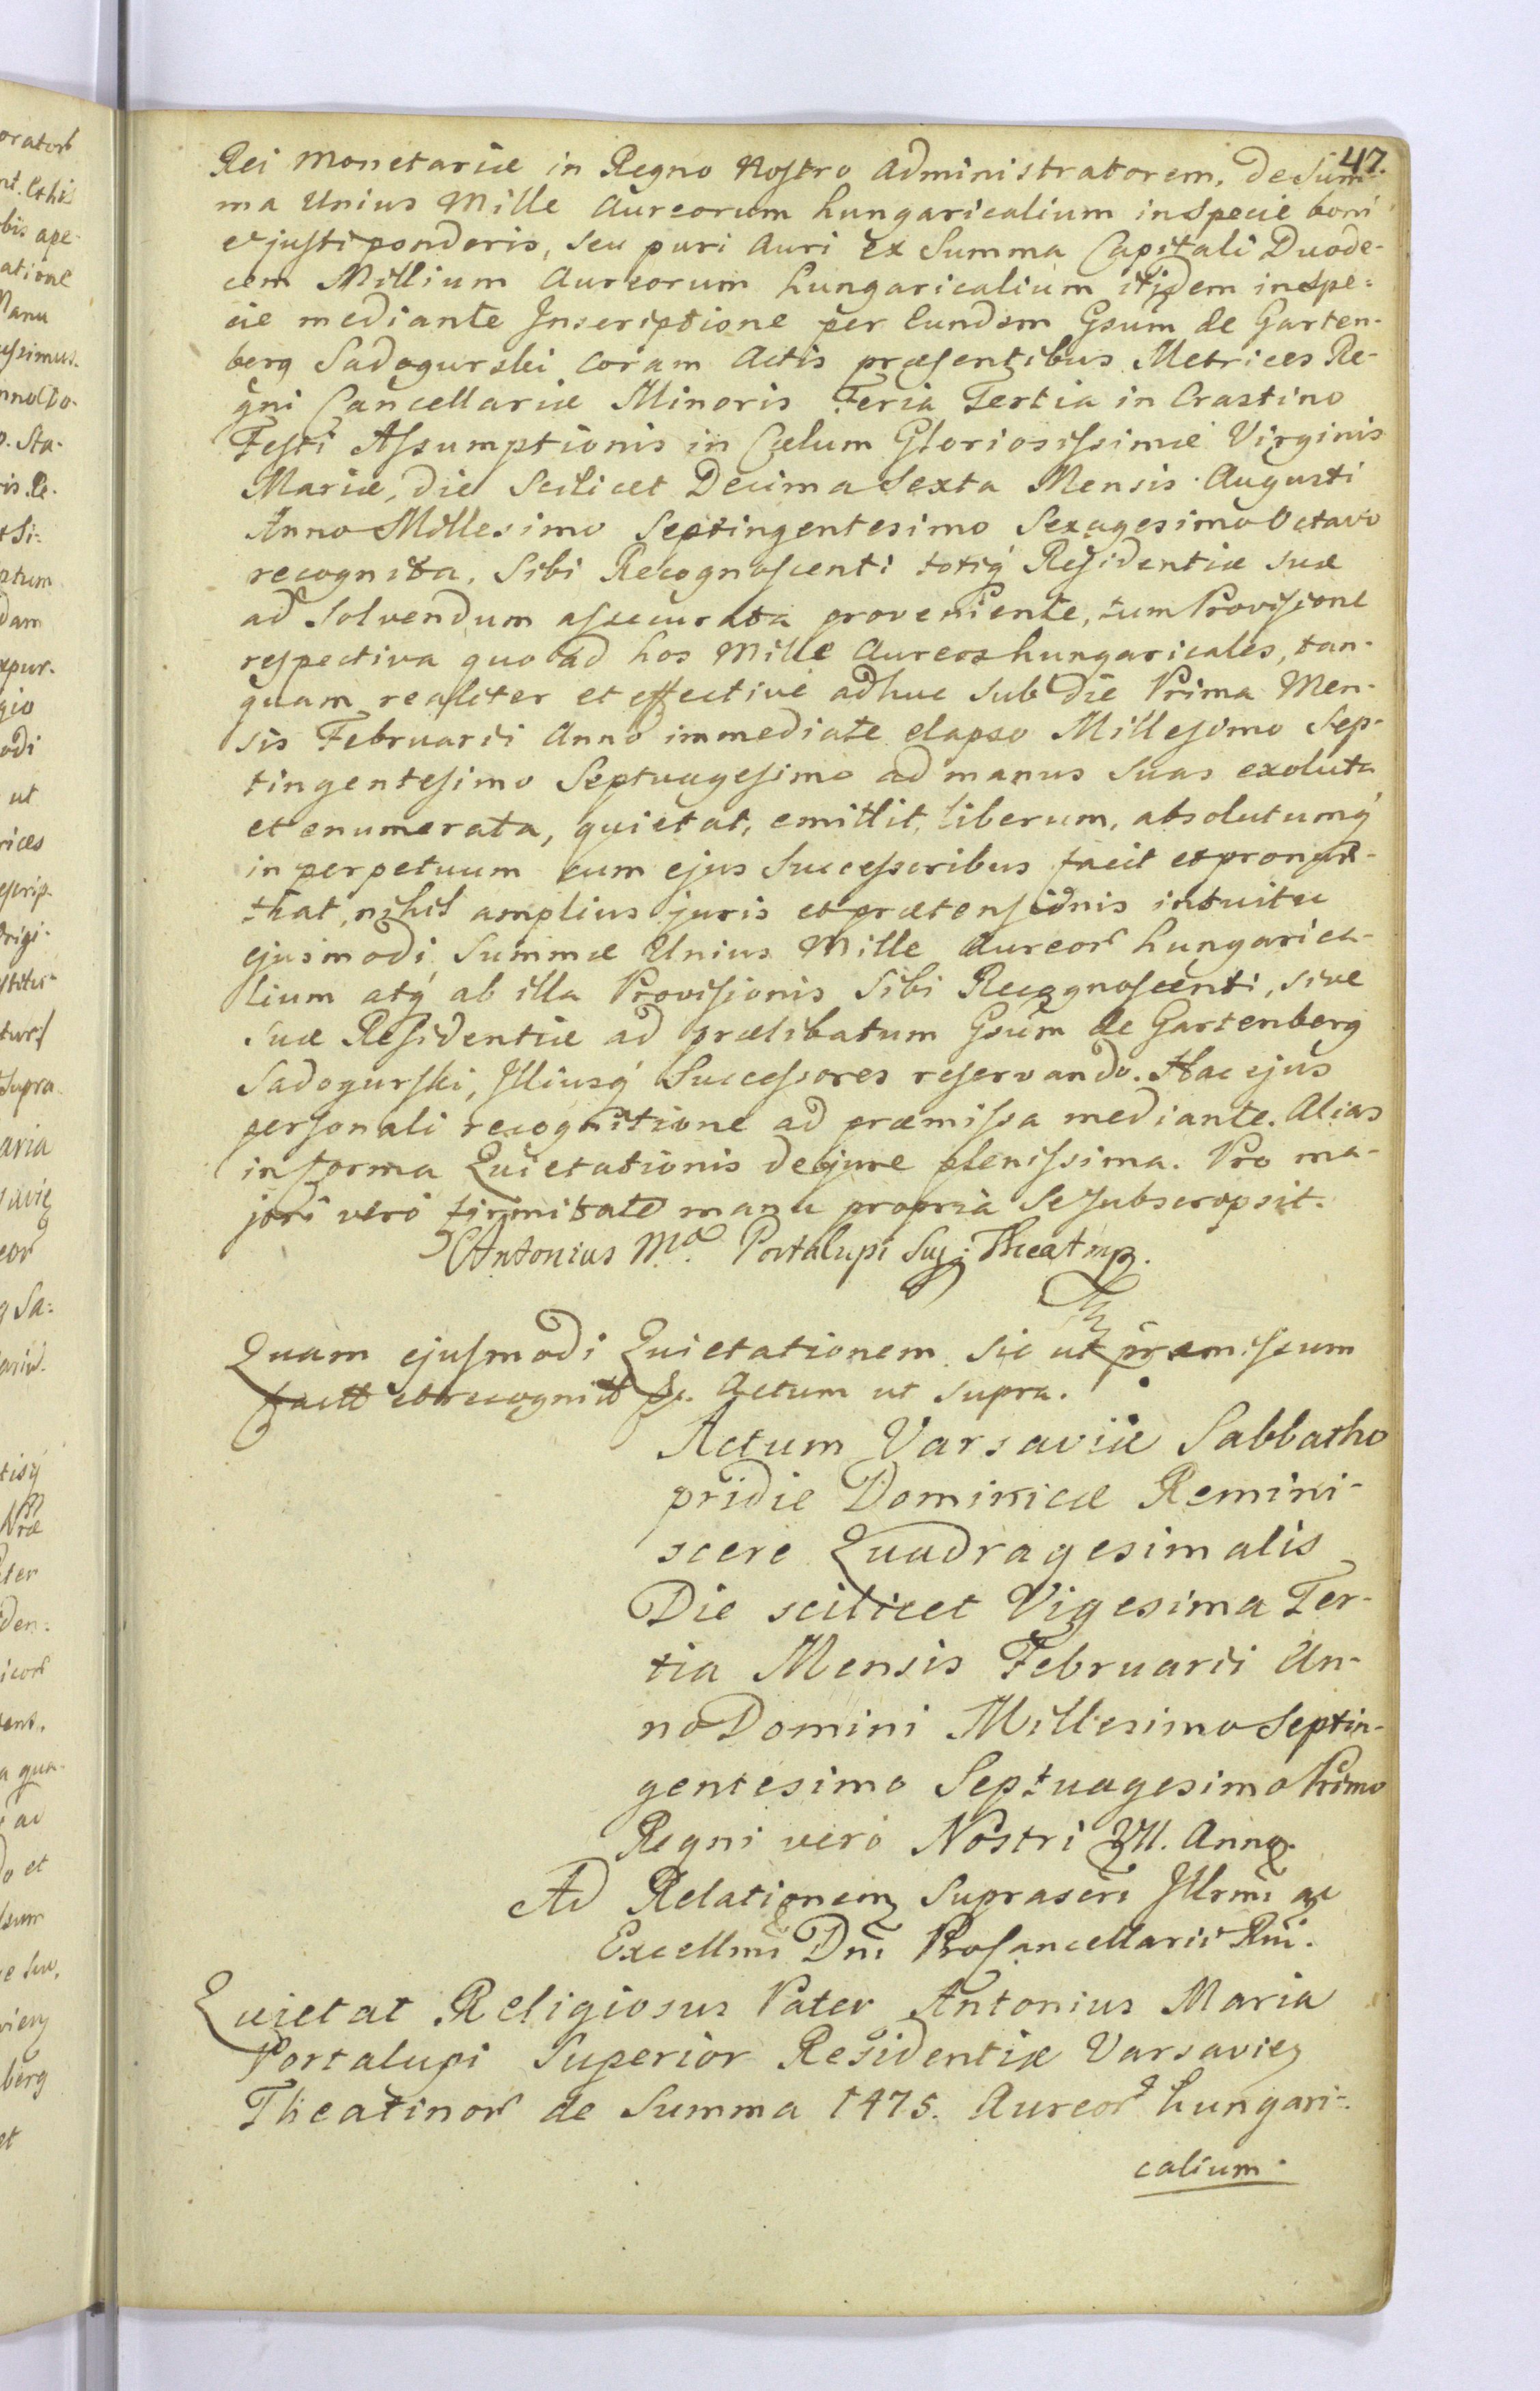 47.
Rei Monetariæ in Regno Nostro Administratorem, de Sum-
ma Unius Mille Aureorum hungaricalium in Specie boni
et justi ponderis, seu puri Auri ex Summa Capitali Duode-
cem Millium Aureorum hungaricalium itidem in Spe-
cie mediante Inscriptione per Eundem Gsum de Garten-
berg Sadogurski coram Actis præsentibus Metrices Re-
gni Cancellariæ Minoris Feria Tertia in Crastino
Festi Assumptionis in Cælum Gloriosissimæ Virginis
Mariæ, die Scilicet Decima Sexta Mensis Augusti
Anno Millesimo Septingentesimo Sexagesimo Octavo
recognita, Sibi Recognoscenti totiq́ Residentiæ suæ
ad Solvendum assecurata proveniente, tum Provisione
respectiva quo ad hos Mille Aureos hungaricales, tan-
quam realiter et effective adhuc sub die Prima Men-
sis Februarii Anno immediate elapso Millesimo Sep-
tingentesimo Septuagesimo ad manus suas exoluta
et enumerata, quietat, emittit, liberum, absolutumq́
in perpetuum cum ejus Successoribus facit et pronun-
tiat, nihil amplius juris et prætensionis intuitu
ejusmodi Summæ Unius Mille Aureor hungarica-
lium atq́ ab illa Provisionis Sibi Recognoscenti, sive
suæ Residentiæ ad prælibatum Gsum de Gartenberg
Sadogurski, Illiusq́ Successores reservando. Hac ejus
personali recognitione ad præmissa mediante. Alias
in forma Quietationis de jure plenissima. Pro ma-
jori vero firmitate manu propria Se subscripsit.
Antonius Ma. Portalupi Sup: Theat mp.
Quam ejusmodi Quietationem sic ut præmissum
facit et recognit &c. Actum ut supra.
Actum Varsaviæ Sabbatho
pridie Dominicæ Remini-
scere Quadragesimalis
Die scilicet Vigesima Ter-
tia Mensis Februarii An-
no Domini Millesimo Septin-
gentesimo Septuagesimo Primo
Regni vero Nostri VII. Anno.
Ad Relationem Suprascri Illrmi ac
Excellmi Dni ProCancellarii Rni.
Quietat Religiosus Pater Antonius Maria
Portalupi Superior Residentiæ Varsavien
Theatinor de Summa 1475. Aureor hungari-
calium